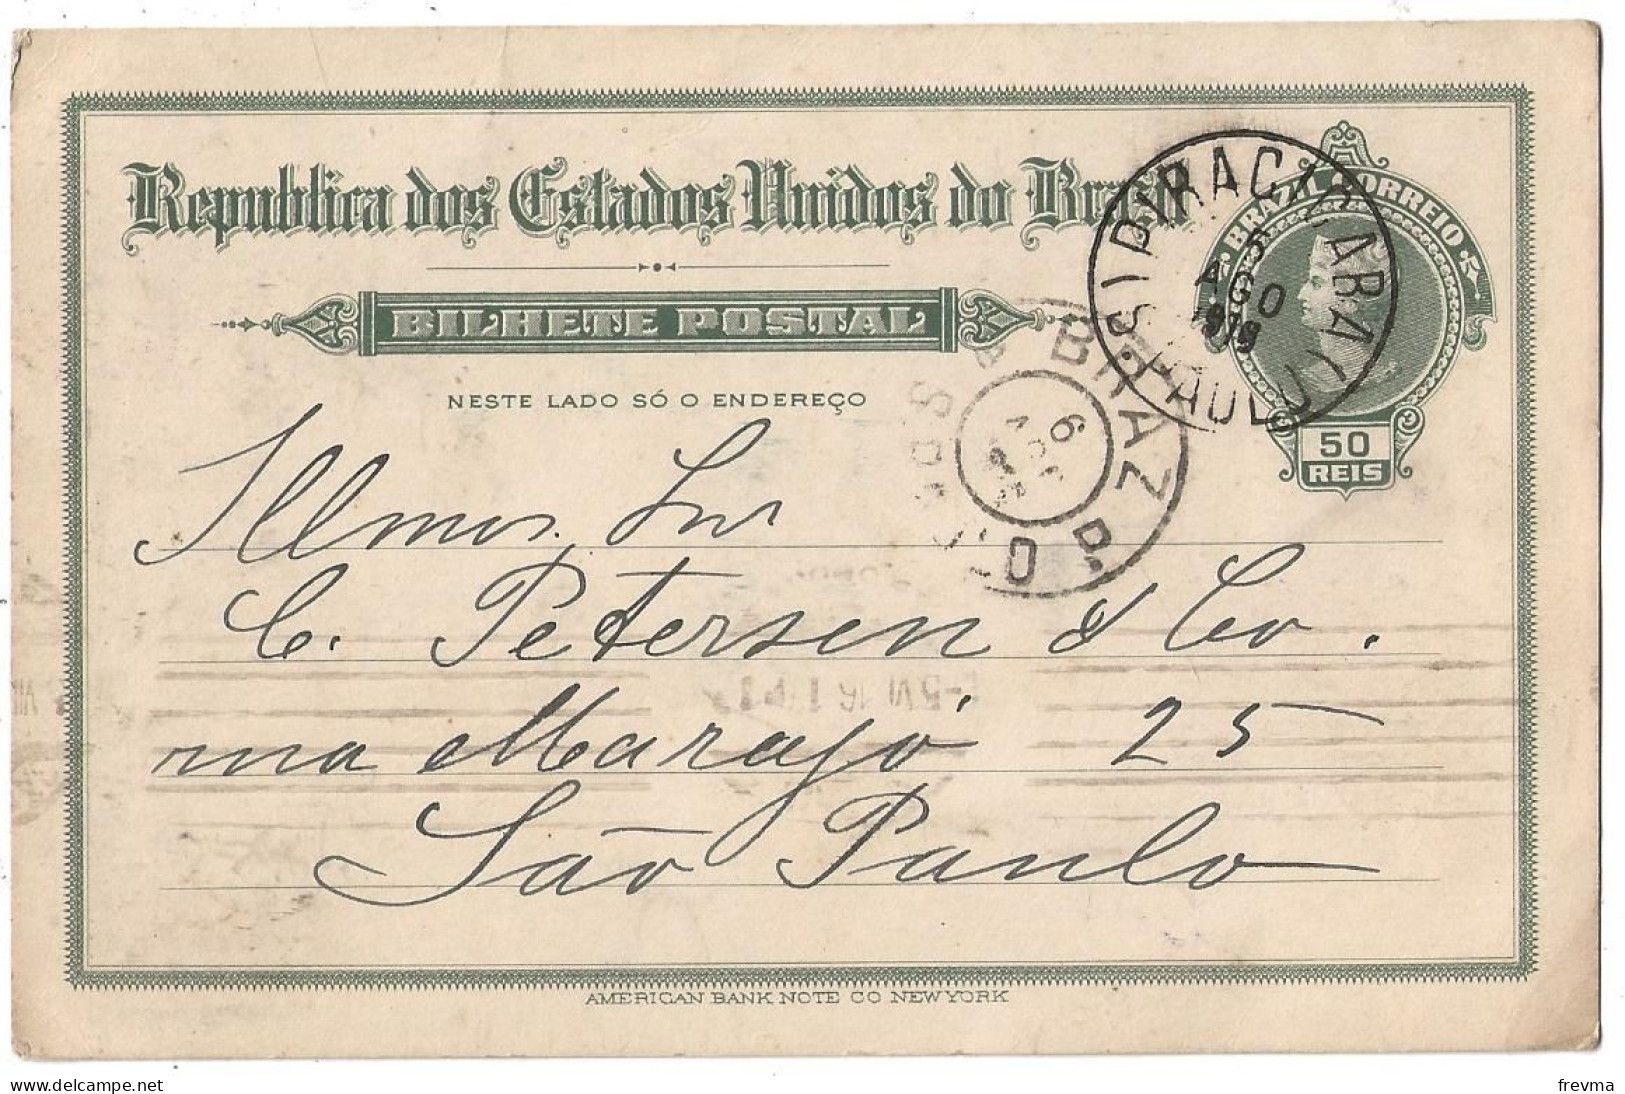 Republica dos Estados Unidos do Brasil
BRAZIL CORREIO
BILHETE POSTAL
NESTE LADO SÓ O ENDEREÇO
50
REIS
PIRACICABA
5
AGO
S. PAULO
BRAZ
6
Illmos. Snr
C. Petersen & Co.
rua Marajó 25
São Paulo
AMERICAN BANK NOTE CO NEW YORK
frevma